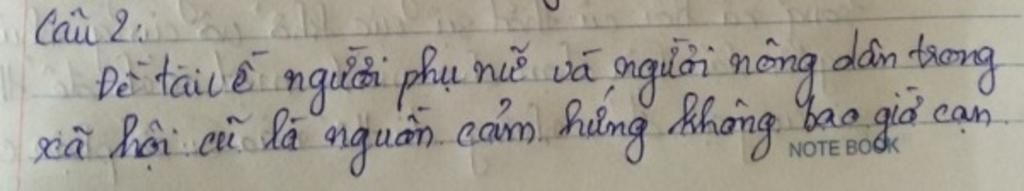 Câu 2:
Đề tài về người phụ nữ và người nông dân trong
xã hội cũ là nguồn cảm hứng không bao giờ cạn
NOTE BOOK